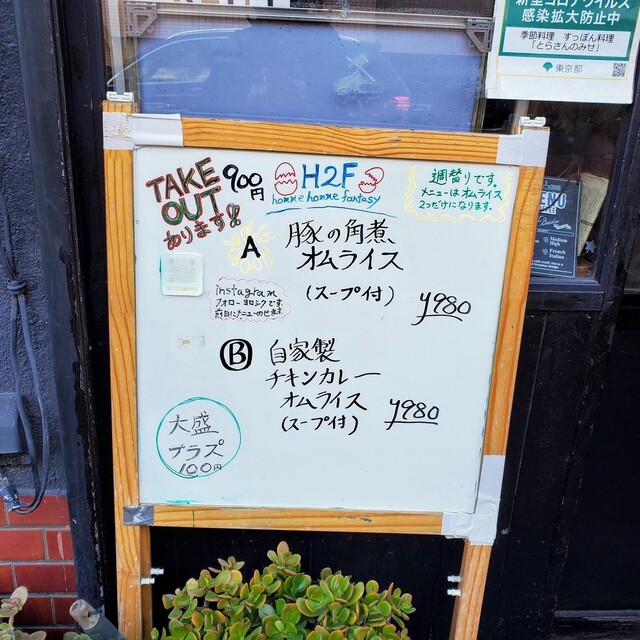 感染拡大防止中
季節料理 すっぽん料理
「とらさんのみせ」
東京都
TAKE
OUT
あります!!
900
円
H2F
homme homme fantasy
週替りです。
メニューは オムライス
2つだけになります。
A
豚の角煮
オムライス
(スープ付)
¥980
instagram
フォローヨロシクです。
メニューのせます。
B
自家製
チキンカレー
オムライス
(スープ付)
¥980
大盛
プラス
100円
MENU
Medium
High
French
Italian